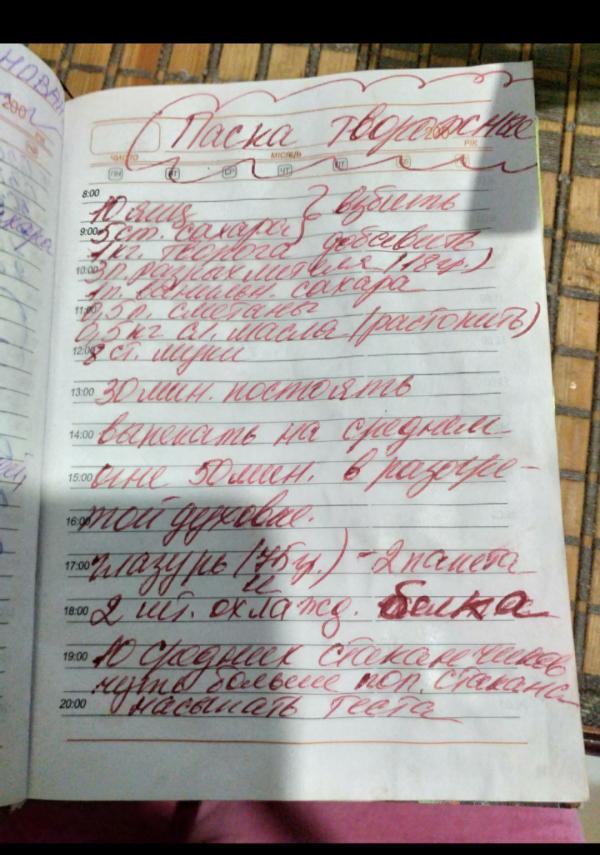 НОВАЯ
200
Паска творожная
200
ЧИСЛО
МІСЯЦЬ
РІК
ПН ВТ СР ЧТ ПТ СБ
8:00
10 яиц } взбить
9:00 5 ст. сахара
1 кг. творога добавить
10:00 3 п. разрыхлителя (18 гр.)
1 п. ванильн. сахара
11:00 0,5 л. сметаны
0,5 кг сл. масла (растопить)
12:00 8 ст. муки
13:00 30 мин. постоять
14:00 выпекать на среднем
15:00 огне 50 мин. в разогре-
16:00 той духовке.
17:00 глазурь (75 гр.) - 2 пакета
и
18:00 2 шт. охлажд. белка
19:00 10 средних стаканчиков
чуть больше пол. стакана
20:00 насыпать теста